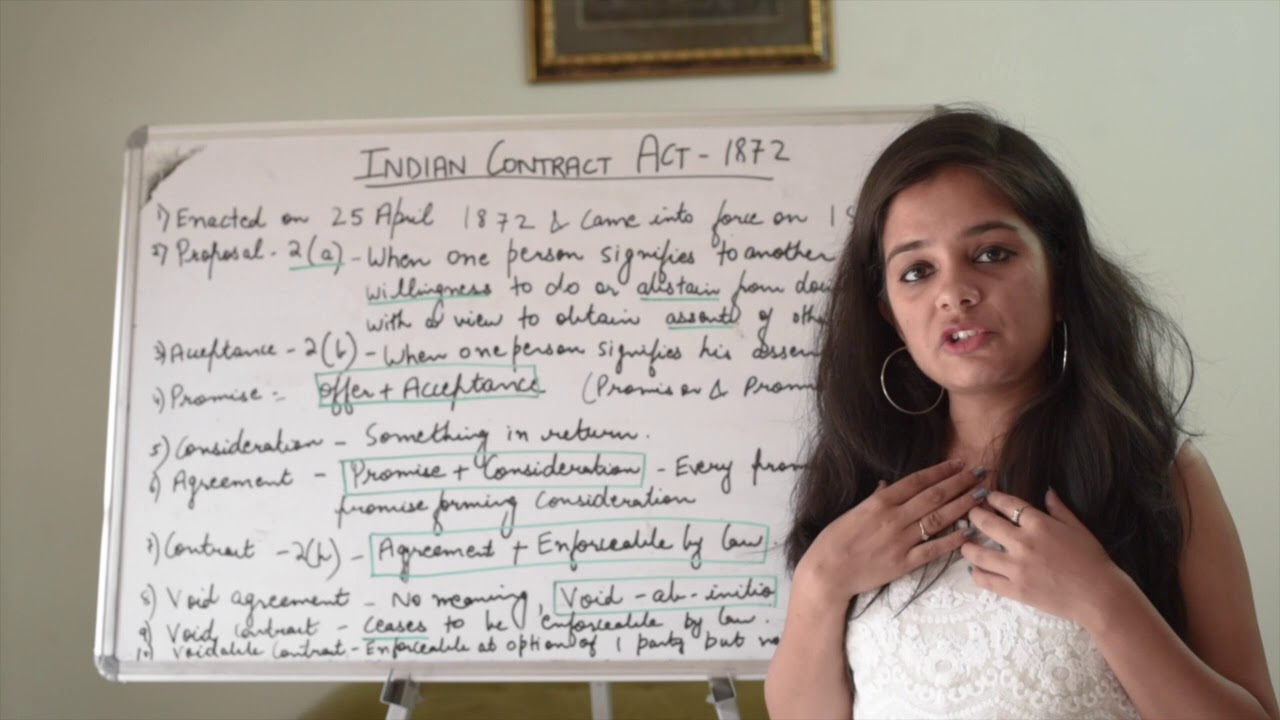 INDIAN CONTRACT ACT - 1872
1) Enacted on 25 April 1872 & Came into force on 1
2) Proposal - 2(a) - When one person signifies to another
willingness to do or abstain from doi
with a view to obtain assent of othe
3) Acceptance - 2(b) - When one person signifies his assen
4) Promise :- Offer + Acceptance (Promisor & Prom
5) Consideration - Something in return.
6) Agreement - Promise + Consideration - Every prom
promise forming Consideration
7) Contract - 2(h) - Agreement + Enforceable by law.
8) Void agreement - No meaning, Void - ab - initio
9) Void Contract - Ceases to be enforceable by law.
10) Voidable Contract - Enforceable at option of 1 party but no